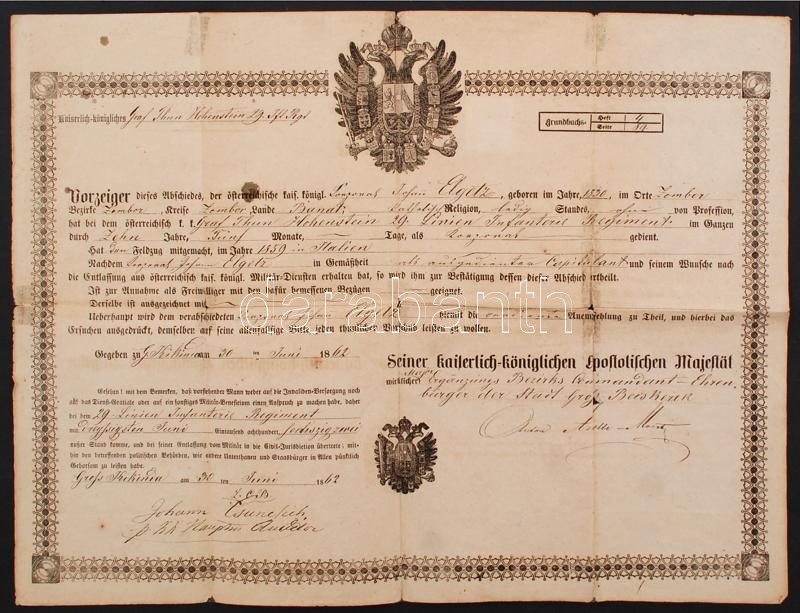 Kaiserlich-königliches Graf Thun Hohenstein 29. Inft Regt
Grundbuchs- Heft 4
Seite 19
Vorzeiger dieses Abschiedes, der österreichische kais. königl. Corporal Johann Agetz, geboren im Jahre 1830, im Orte Zombor
Bezirke Zombor, Kreise Zombor Lande Banat, Religion, ledig Standes, ohne von Profession,
hat bei dem österreichischen k. k. Graf Thun Hohenstein 29. Linien Infanterie Regiment im Ganzen
durch Zehn Jahre, Fünf Monate, Tage, als Corporal gedient.
Hat den Feldzug mitgemacht, im Jahre 1859 in Italien
Nachdem Corporal Johann Agetz in Gemäßheit als ausgedienter Capitulant und seinem Wunsche nach
die Entlassung aus österreichisch kais. königl. Militär-Diensten erhalten hat, so wird ihm zur Bestätigung dessen dieser Abschied ertheilt.
Ist zur Annahme als Freiwilliger mit den hafür bemessenen Bezügen geeignet.
Derselbe ist ausgezeichnet mit
Ueberhaupt wird dem verabschiedeten Corporal Johann Agetz hiemit die Anempfehlung zu Theil, und hierbei das
Ersuchen ausgedrückt, demselben auf seine allenfallsige Bitte jeden thunlichen Vorschub leisten zu wollen.
Gegeben zu G. Kikinda am 30 ten Juni 1862
Seiner kaiserlich-königlichen Apostolischen Majestät
wirklicher Major Ergänzungs Bezirks Commandant – Ehren
bürger der Stadt Groß Beckerek
Gesehen! mit dem Bemerken, daß vorstehender Mann weder auf die Invaliden-Versorgung noch
auf das Dienst-Gratiale oder auf ein sonstiges Militär-Benefizium einen Anspruch zu machen habe, daher
bei dem 29. Linien Infanterie Regiment
mit dreyssigsten Juni Eintausend achthundert sechszig zwei
außer Stand komme, und bei seiner Entlassung vom Militär in die Civil-Jurisdiction übertrete; mit-
hin den betreffenden politischen Behörden, wie andere Unterthanen und Staatsbürger in Allem pünktlich
Gehorsam zu leisten habe.
Gross Kikinda am 30 ten Juni 1862
Johann
Hauptm Auditor
darabanth